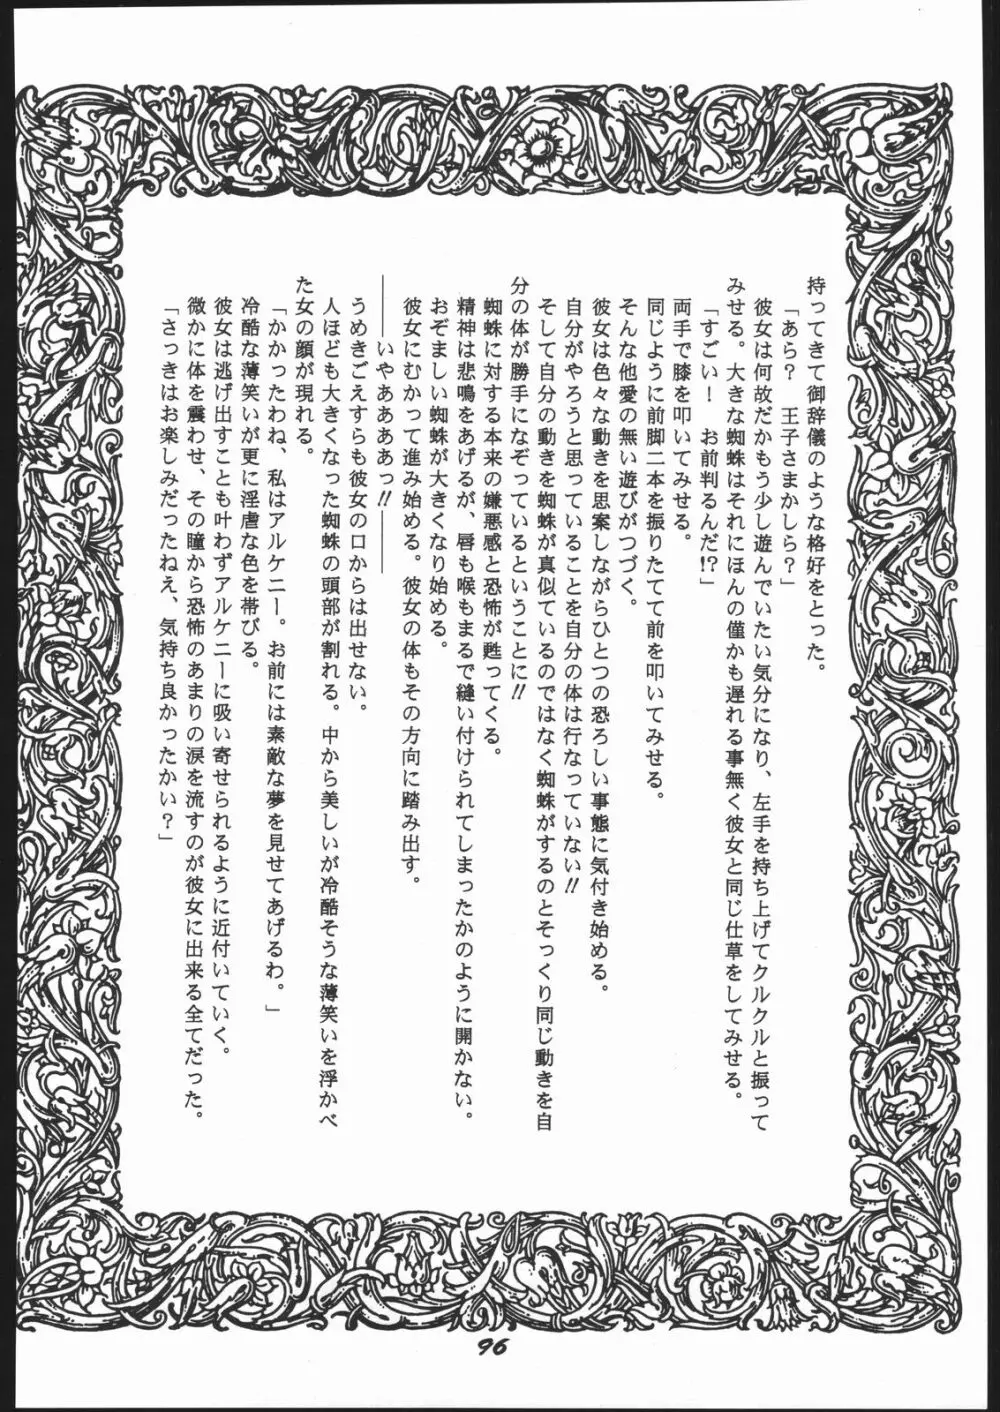 持ってきて御辞儀のような格好をとった。
「あら？　王子さまかしら？」
彼女は何故だかもう少し遊んでいたい気分になり、左手を持ち上げてクルクルと振って
みせる。大きな蜘蛛はそれにほんの僅かも遅れる事無く彼女と同じ仕草をしてみせる。
「すごい！　お前判るんだ!?」
両手で膝を叩いてみせる。
同じように前脚二本を振りたてて前を叩いてみせる。
そんな他愛の無い遊びがつづく。
彼女は色々な動きを思案しながらひとつの恐ろしい事態に気付き始める。
自分がやろうと思っていることを自分の体は行なっていない!!
そして自分の動きを蜘蛛が真似ているのではなく蜘蛛がするのとそっくり同じ動きを自
分の体が勝手になぞっているということに!!
蜘蛛に対する本来の嫌悪感と恐怖が甦ってくる。
精神は悲鳴をあげるが、唇も喉もまるで縫い付けられてしまったかのように開かない。
おぞましい蜘蛛が大きくなり始める。
彼女にむかって進み始める。彼女の体もその方向に踏み出す。
――いやああああっ!!――
うめきごえすらも彼女の口からは出せない。
人ほども大きくなった蜘蛛の頭部が割れる。中から美しいが冷酷そうな薄笑いを浮かべ
た女の顔が現れる。
「かかったわね、私はアルケニー。お前には素敵な夢を見せてあげるわ。」
冷酷な薄笑いが更に淫虐な色を帯びる。
彼女は逃げ出すことも叶わずアルケニーに吸い寄せられるように近付いていく。
微かに体を震わせ、その瞳から恐怖のあまりの涙を流すのが彼女に出来る全てだった。
「さっきはお楽しみだったねえ、気持ち良かったかい？」
96